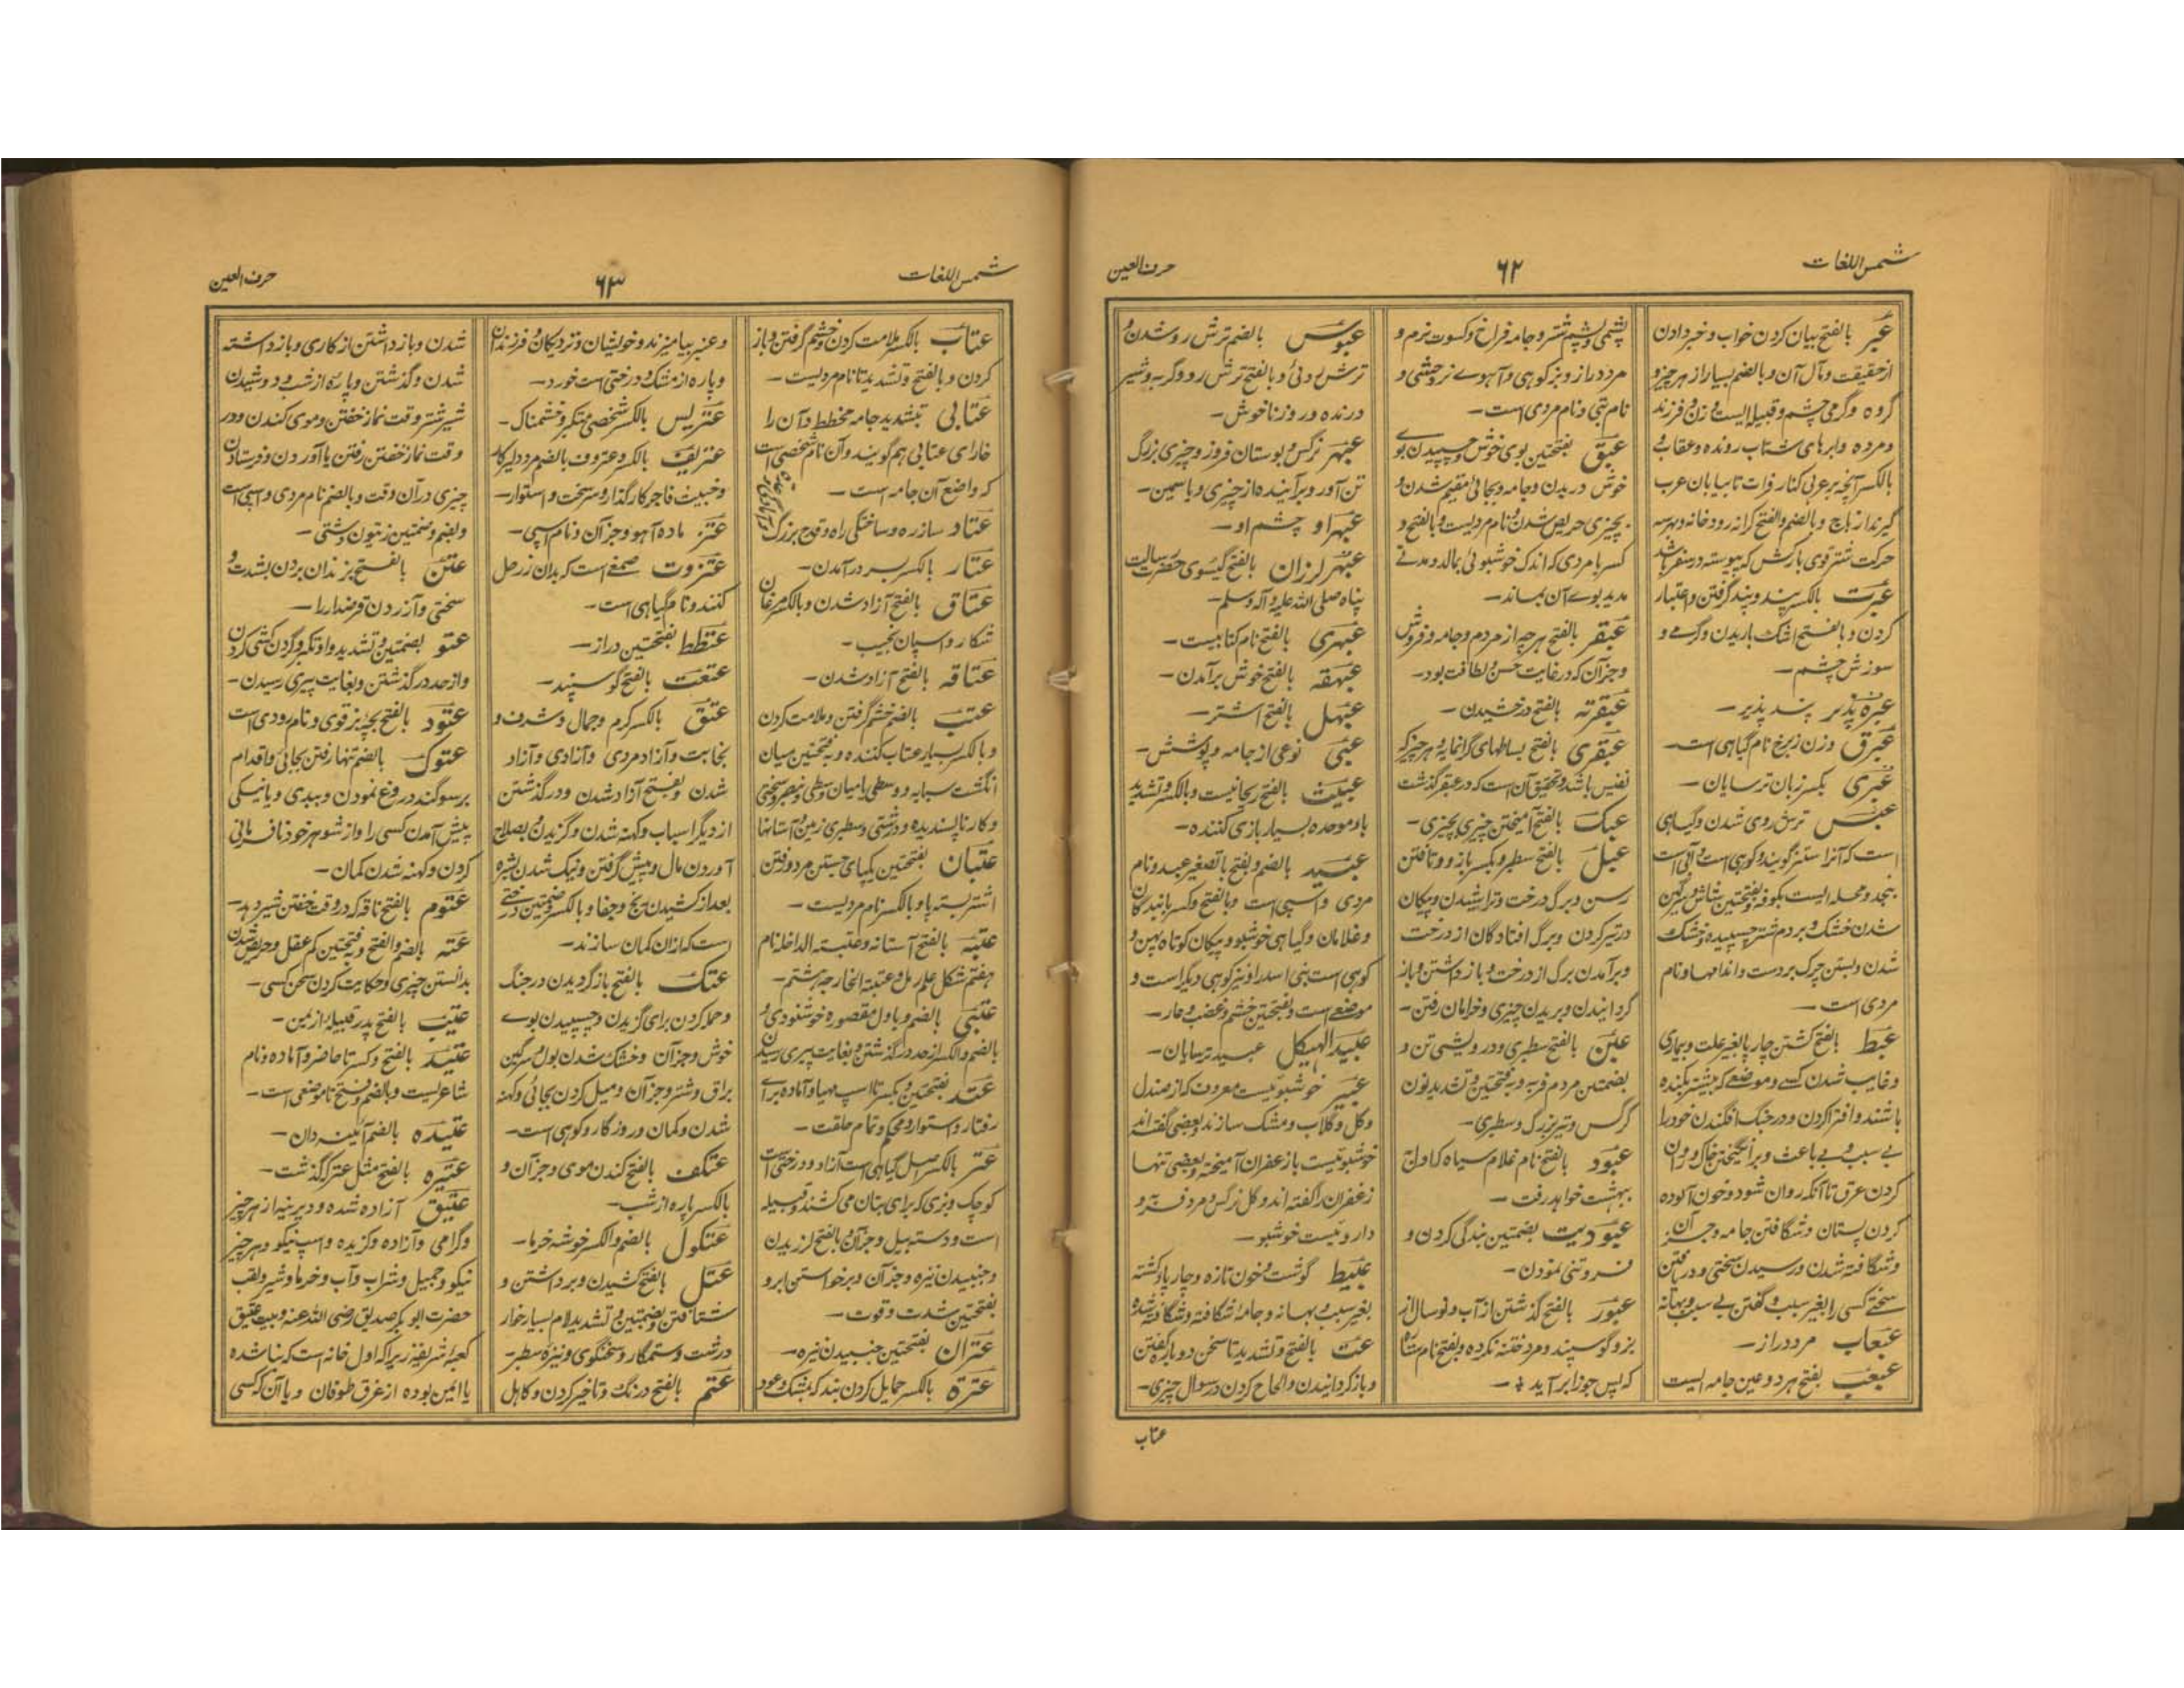 شمس اللغات
۶۲
حرف العین
عبر بالفتح بیان کردن خواب و خبر دادن
از حقیقت و مآل آن و بالضم بسیار از هر چیز و
گروه و گرمی چشم و قبیله ایست و زن و فرزند
و مرده و ابرهای شتاب رونده و عقاب
بالکسر آنچه بر عربی کنار فرات تا بیابان عرب
گیرند از باج و بالضم والفتح کرانه رودخانه و بهرسه
حرکت شتر قوی بارکش که پیوسته در سفر باشد
عبرت بالکسر پند و پند گرفتن و اعتبار
کردن و بالفتح اشک باریدن و گرمی و
سوزش چشم —
عبره پذیر پند پذیر —
عبرق وزن زبرخ نام گیاهی است —
عبری بکسر زبان ترسایان —
عبس ترش روی شدن و گیاهی
است که آنرا سیسنبر گویند و کوهی است و آبی است
بنجد و محله ایست بکوفه و بفتحتین شاش و سرگین
شدن خشک بر دم شتر چسپیده و خشک
شدن و بستن چرک بر دست و اندامها و نام
مردی است —
عبط بالفتح کشتن چارپا بغیر علت و بیماری
و غایب شدن کسی و موضعی که بیشتر نکنده
باشند و افترا کردن و در جنگ افگندن خود را
بی سبب و بی باعث و برانگیختن خاک و روان
کردن عرق تا آنکه روان شود و خون آلوده
کردن پستان و شگافتن جامه و جز آن
و شگافته شدن و رسیدن سختی و دریافتن
سختی کسی را بغیر سبب و گفتن بی سبب و بهانه
عبعاب مرد دراز —
عبعب بفتح هر دو عین جامه ایست
پشمی و پشم شتر و جامه فراخ و کسوت نرم و
مرد دراز و بز کوهی و آهوے نر وحشی و
نام بتی و نام مردی است —
عبق بفتحتین بوی خوش و چسپیدن بوے
خوش در بدن و جامه و بجائی مقیم شدن و
بچیزی حریص شدن و نام مردیست و بالفتح و
کسر با مردی که اندک خوشبوئی بمالد و مدتے
مدید بوے آن بماند —
عبقر بالفتح هر چه از مردم و جامه و فروش
و جز آن که در غایت حسن و لطافت بود —
عبقرته بالفتح درخشیدن —
عبقری بالفتح بساطهای گرانمایه و هر چیز که
نفیس باشد و تحقیق آن است که در عبقر گذشت
عبک بالفتح آمیختن چیزی بچیزی —
عبل بالفتح سطبر و بکسر با زور و تافتن
رسن و برگ درخت و تراشیدن و پیکان
در تیر کردن و برگ افتادگان از درخت
و برآمدن برگ از درخت و باز داشتن و باز
گردانیدن و بریدن چیزی و خرامان رفتن —
عبن بالفتح سطبری و درویشی تن و
بضمتین مردم فربه و بفتحتین و تشدید نون
کرگس و تیر بزرگ و سطبری —
عبود بالفتح نام غلام سیاه که اول
ببهشت خواهد رفت —
عبودیت بضمتین بندگی کردن و
فروتنی نمودن —
عبور بالفتح گذشتن از آب و نوسال از
بز و گوسپند و مرد ختنه نکرده و بفتح نام ستاره
که پس جوزا برآید —
عبوس بالضم ترش رو شدن و
ترش روئی و بالفتح ترش رو و گربه و شیر
درنده و روز ناخوش —
عبهر نرگس و بوستان فروز و چیزی بزرگ
تن آور و برآینده از چیزی و یاسمین —
عبهر او چشم او —
عبهر لرزان بالفتح گیسوی حضرت رسالت
پناه صلی الله علیه و آله وسلم —
عبهری بالفتح نام کتابیست —
عبهقه بالفتح خوش برآمدن —
عبهل بالفتح اشتر —
عبی نوعی از جامه و پوشش —
عبیث بالفتح ریحانیست و بالکسر و تشدید
باء موحده بسیار بازی کننده —
عبید بالضم و بفتح با تصغیر عبد و نام
مردی و اسپی است و بالفتح و کسر با بندگان
و غلامان و گیاهی خوشبو و پیکان کوتاه پهن و
کوهی است بنی اسد را و نیز کوهی دیگر است و
موضعی است و بفتحتین خشم و غضب و عار —
عبید الهیکل عبید ترسایان —
عبیر خوشبوئیست معروف که از صندل
و گل و گلاب و مشک سازند و بعضی گفته اند
خوشبوئیست با زعفران آمیخته و بعضی تنها
زعفران را گفته اند و گل نرگس و مرد فربه و
داروئیست خوشبو —
عبیط گوشت و خون تازه و چارپا کشته
بغیر سبب و بهانه و جامه شگافته و شگافته شده
عت بالفتح و تشدید تا سخن دوباره گفتن
و باز گردانیدن و الحاح کردن در سوال چیزی —
عتاب
شمس اللغات
۶۳
حرف العین
عتاب بالکسر ملامت کردن و خشم گرفتن و باز
کردن و بالفتح و تشدید تا نام مردیست —
عتابی بتشدید جامه مخطط و آن را
خارای عتابی هم گویند و آن نام شخصی است
که واضع آن جامه است —
عتاد ساز ره و ساختگی راه و قدح بزرگ
عتار بالکسر بسر درآمدن —
عتاق بالفتح آزاد شدن و بالکسر مرغان
شکار و اسپان نجیب —
عتاقه بالفتح آزاد شدن —
عتب بالفتح خشم گرفتن و ملامت کردن
و بالکسر بسیار عتاب کننده و بفتحتین میان
انگشت سبابه و وسطی یا میان وسطی و بنصر و سختی
و کار ناپسندیده و درشتی و سطبری زمین و آستانها
عتبان بفتحتین یکپای جستن مرد و رفتن
اشتر بسه پا و بالکسر نام مردیست —
عتبه بالفتح آستانه و عتبة الداخله نام
هفتم شکل علم رمل و عتبة الخارجه هشتم —
عتبی بالضم و باول مقصوره خوشنودی و
بالضم والکسر از حد درگذشتن و بغایت پیری رسیدن
عتد بفتحتین و بکسر تا اسپ مهیا و آماده برای
رفتار و استوار و محکم و تمام خلقت —
عتر بالکسر اصل گیاهی است آزاد و درختی است
کوچک و بزی که برای بتان می کشند و قبیله
است و دسته بیل و جز آن و بالفتح لرزیدن
و جنبیدن نیزه و جز آن و برخواستن ابرو
بفتحتین شدت و قوت —
عتران بفتحتین جنبیدن نیزه —
عترة بالکسر حمایل کردن بند که بمشک و عود
و عنبر بیامیزند و خویشان و نزدیکان و فرزندان
و پاره از مشک و درختی است خورد —
عتریس بالکسر شخصی متکبر و خشمناک —
عتریف بالکسر و عتروف بالضم مرد دلیر کار
و خبیث فاجر کارگذار و سخت و استوار —
عتز ماده آهو و جز آن و نام اسپی —
عتزوت صمغی است که بدان زر حل
کنند و نام گیاهی است —
عتطط بفتحتین دراز —
عتعت بالفتح گوسپند —
عتق بالکسر کرم و جمال و شرف و
نجابت و آزاد مردی و آزادی و آزاد
شدن و بفتح آزاد شدن و درگذشتن
از دیگر اسپان و کهنه شدن و گزیدن و بصلاح
آوردن مال و پیش گرفتن و نیک شدن بشره
بعد از کشیدن رنج و جفا و بالکسر و ضمتین درختی
است که ازان کمان سازند —
عتک بالفتح باز گردیدن در جنگ
و حمله کردن برای گزیدن و چسپیدن بوے
خوش و جز آن و خشک شدن بول و سرگین
بر ران شتر و جز آن و میل کردن بجائی و کهنه
شدن و کمان و روزگار و کوهی است —
عتکف بالفتح کندن موی و جز آن و
بالکسر پاره از شب —
عتکول بالضم والکسر خوشه خرما —
عتل بالفتح کشیدن و برداشتن و
شتافتن و بضمتین و تشدید لام بسیار خوار
درشت و ستمگار و سخنگوی و نیزه سطبر —
عتم بالفتح درنگ و تاخیر کردن و کاهل
شدن و باز داشتن از کاری و باز داشته
شدن و گذشتن و پاره از شب و دوشیدن
شیر شتر وقت نماز خفتن و موی کندن و در
وقت نماز خفتن رفتن یا آوردن و فرستادن
چیزی در آن وقت و بالضم نام مردی و اسپی است
و بضم و ضمتین زیتون دشتی —
عتن بالفتح بزندان بردن بشدت و
سختی و آزردن قرضدار را —
عتو بضمتین و تشدید واو تکبر و گردن کشی کردن
و از حد درگذشتن و بغایت پیری رسیدن —
عتود بالفتح بچه بز قوی و نام رودی است
عتوک بالضم تنها رفتن بجائی و اقدام
بر سوگند دروغ نمودن و ببدی و یا نیکی
پیش آمدن کسی را و از شوهر خود نافرمانی
کردن و کهنه شدن کمان —
عتوم بالفتح ناقه که در وقت خفتن شیر دهد —
عته بالضم والفتح و بفتحتین کم عقل و حریص شدن
بدانستن چیزی و حکایت کردن سخن کسی —
عتیب بالفتح پدر قبیله از یمن —
عتید بالفتح و کسر تا حاضر و آماده و نام
شاعریست و بالضم و فتح تا موضعی است —
عتیده بالضم آئینه دان —
عتیره بالفتح مثل عتر که گذشت —
عتیق آزاده شده و دیرینه از هر چیز
و گرامی و آزاده و گزیده و اسپ نیکو و هر چیز
نیکو و جمیل و شراب و آب و خرما و شیر و لقب
حضرت ابوبکر صدیق رضی الله عنه و بیت عتیق
کعبه شریفه زیرا که اول خانه است که بنا شده
یا ایمن بوده از غرق طوفان و یا آن که کسی